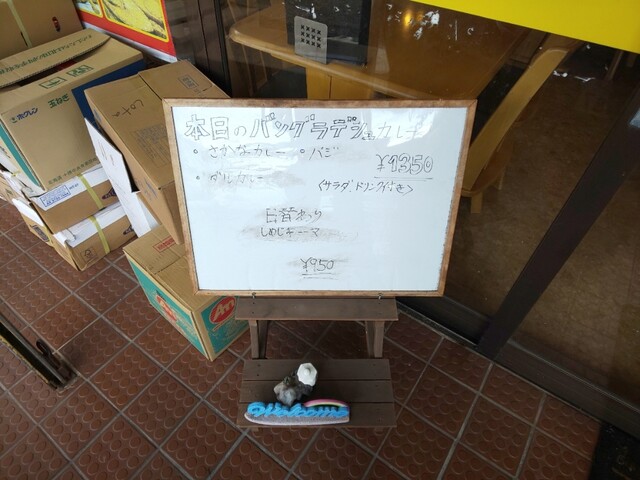 本日のバングラデシュカレー
・さかなカレー ・バジ
¥1350
・ダルカレー
<サラダ、ドリンク付き>
日替わり
しめじキーマ
¥950
Welcome
ホクレン
玉ねぎ